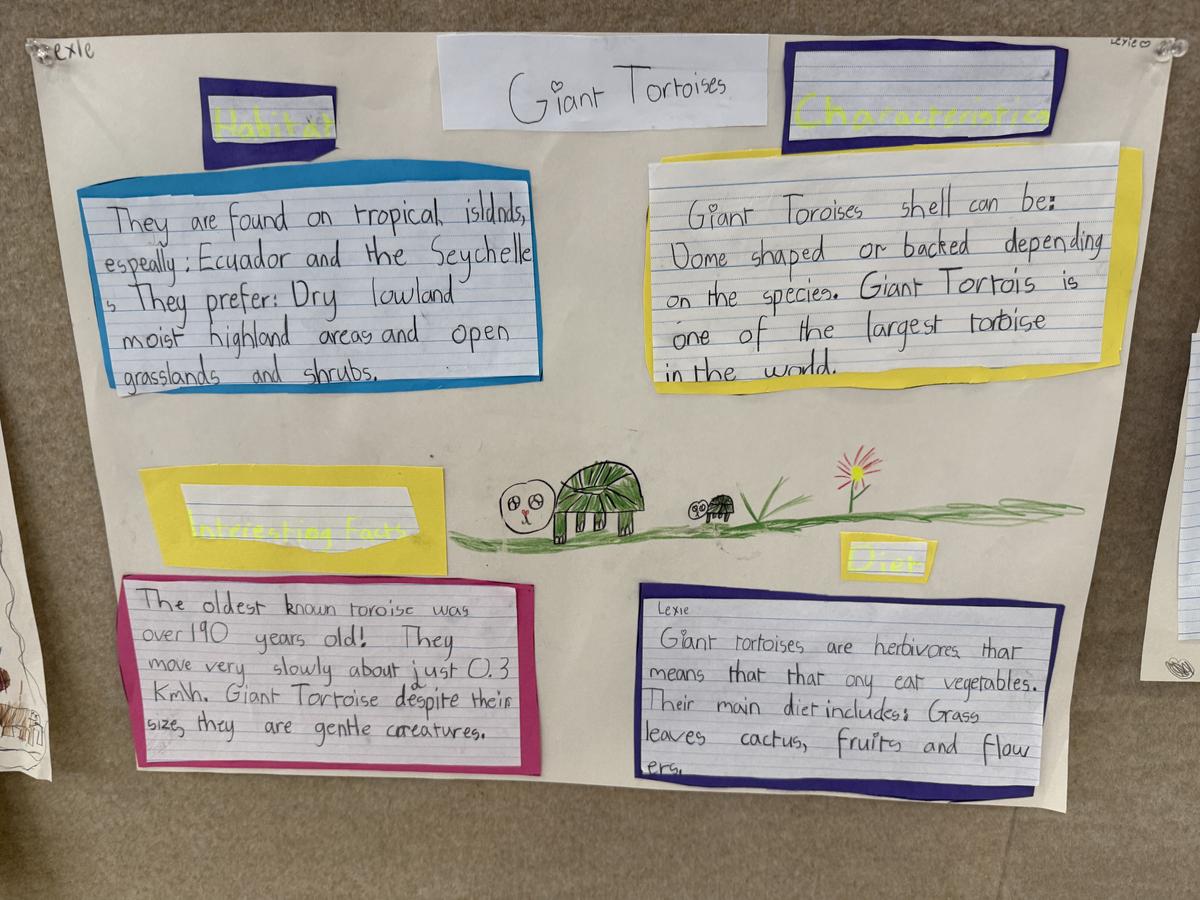 Lexie
Lexie
Giant Tortoises
Habitat
They are found on tropical islands,
espeally: Ecuador and the Seychelle
s They prefer: Dry lowland
moist highland areas and open
grasslands and shrubs.
Characteristics
Giant Toroises shell can be:
Dome shaped or backed depending
on the species. Giant Tortois is
one of the largest tortoise
in the world.
Interesting Facts
The oldest known toroise was
over 190 years old! They
move very slowly about just 0.3
Km/h. Giant Tortoise despite their
size, they are gentle creatures.
Diet
Lexie
Giant tortoises are herbivores that
means that that ony eat vegetables.
Their main diet includes: Grass
leaves cactus, fruits and flow
ers.